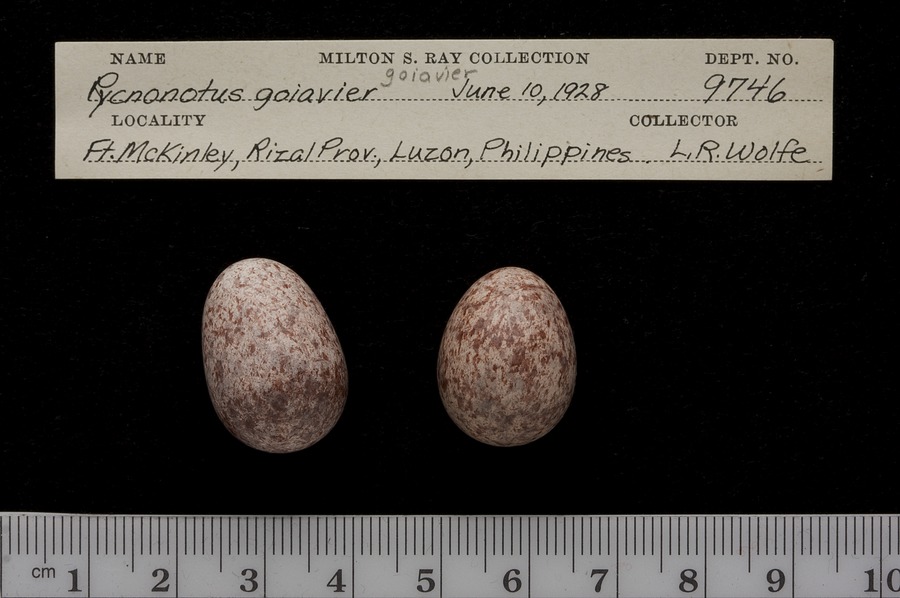 NAME MILTON S. RAY COLLECTION DEPT. NO.
goiavier
Pycnonotus goiavier June 10, 1928 9746
LOCALITY COLLECTOR
Ft. McKinley, Rizal Prov., Luzon, Philippines. L.R. Wolfe
cm 1 2 3 4 5 6 7 8 9 10